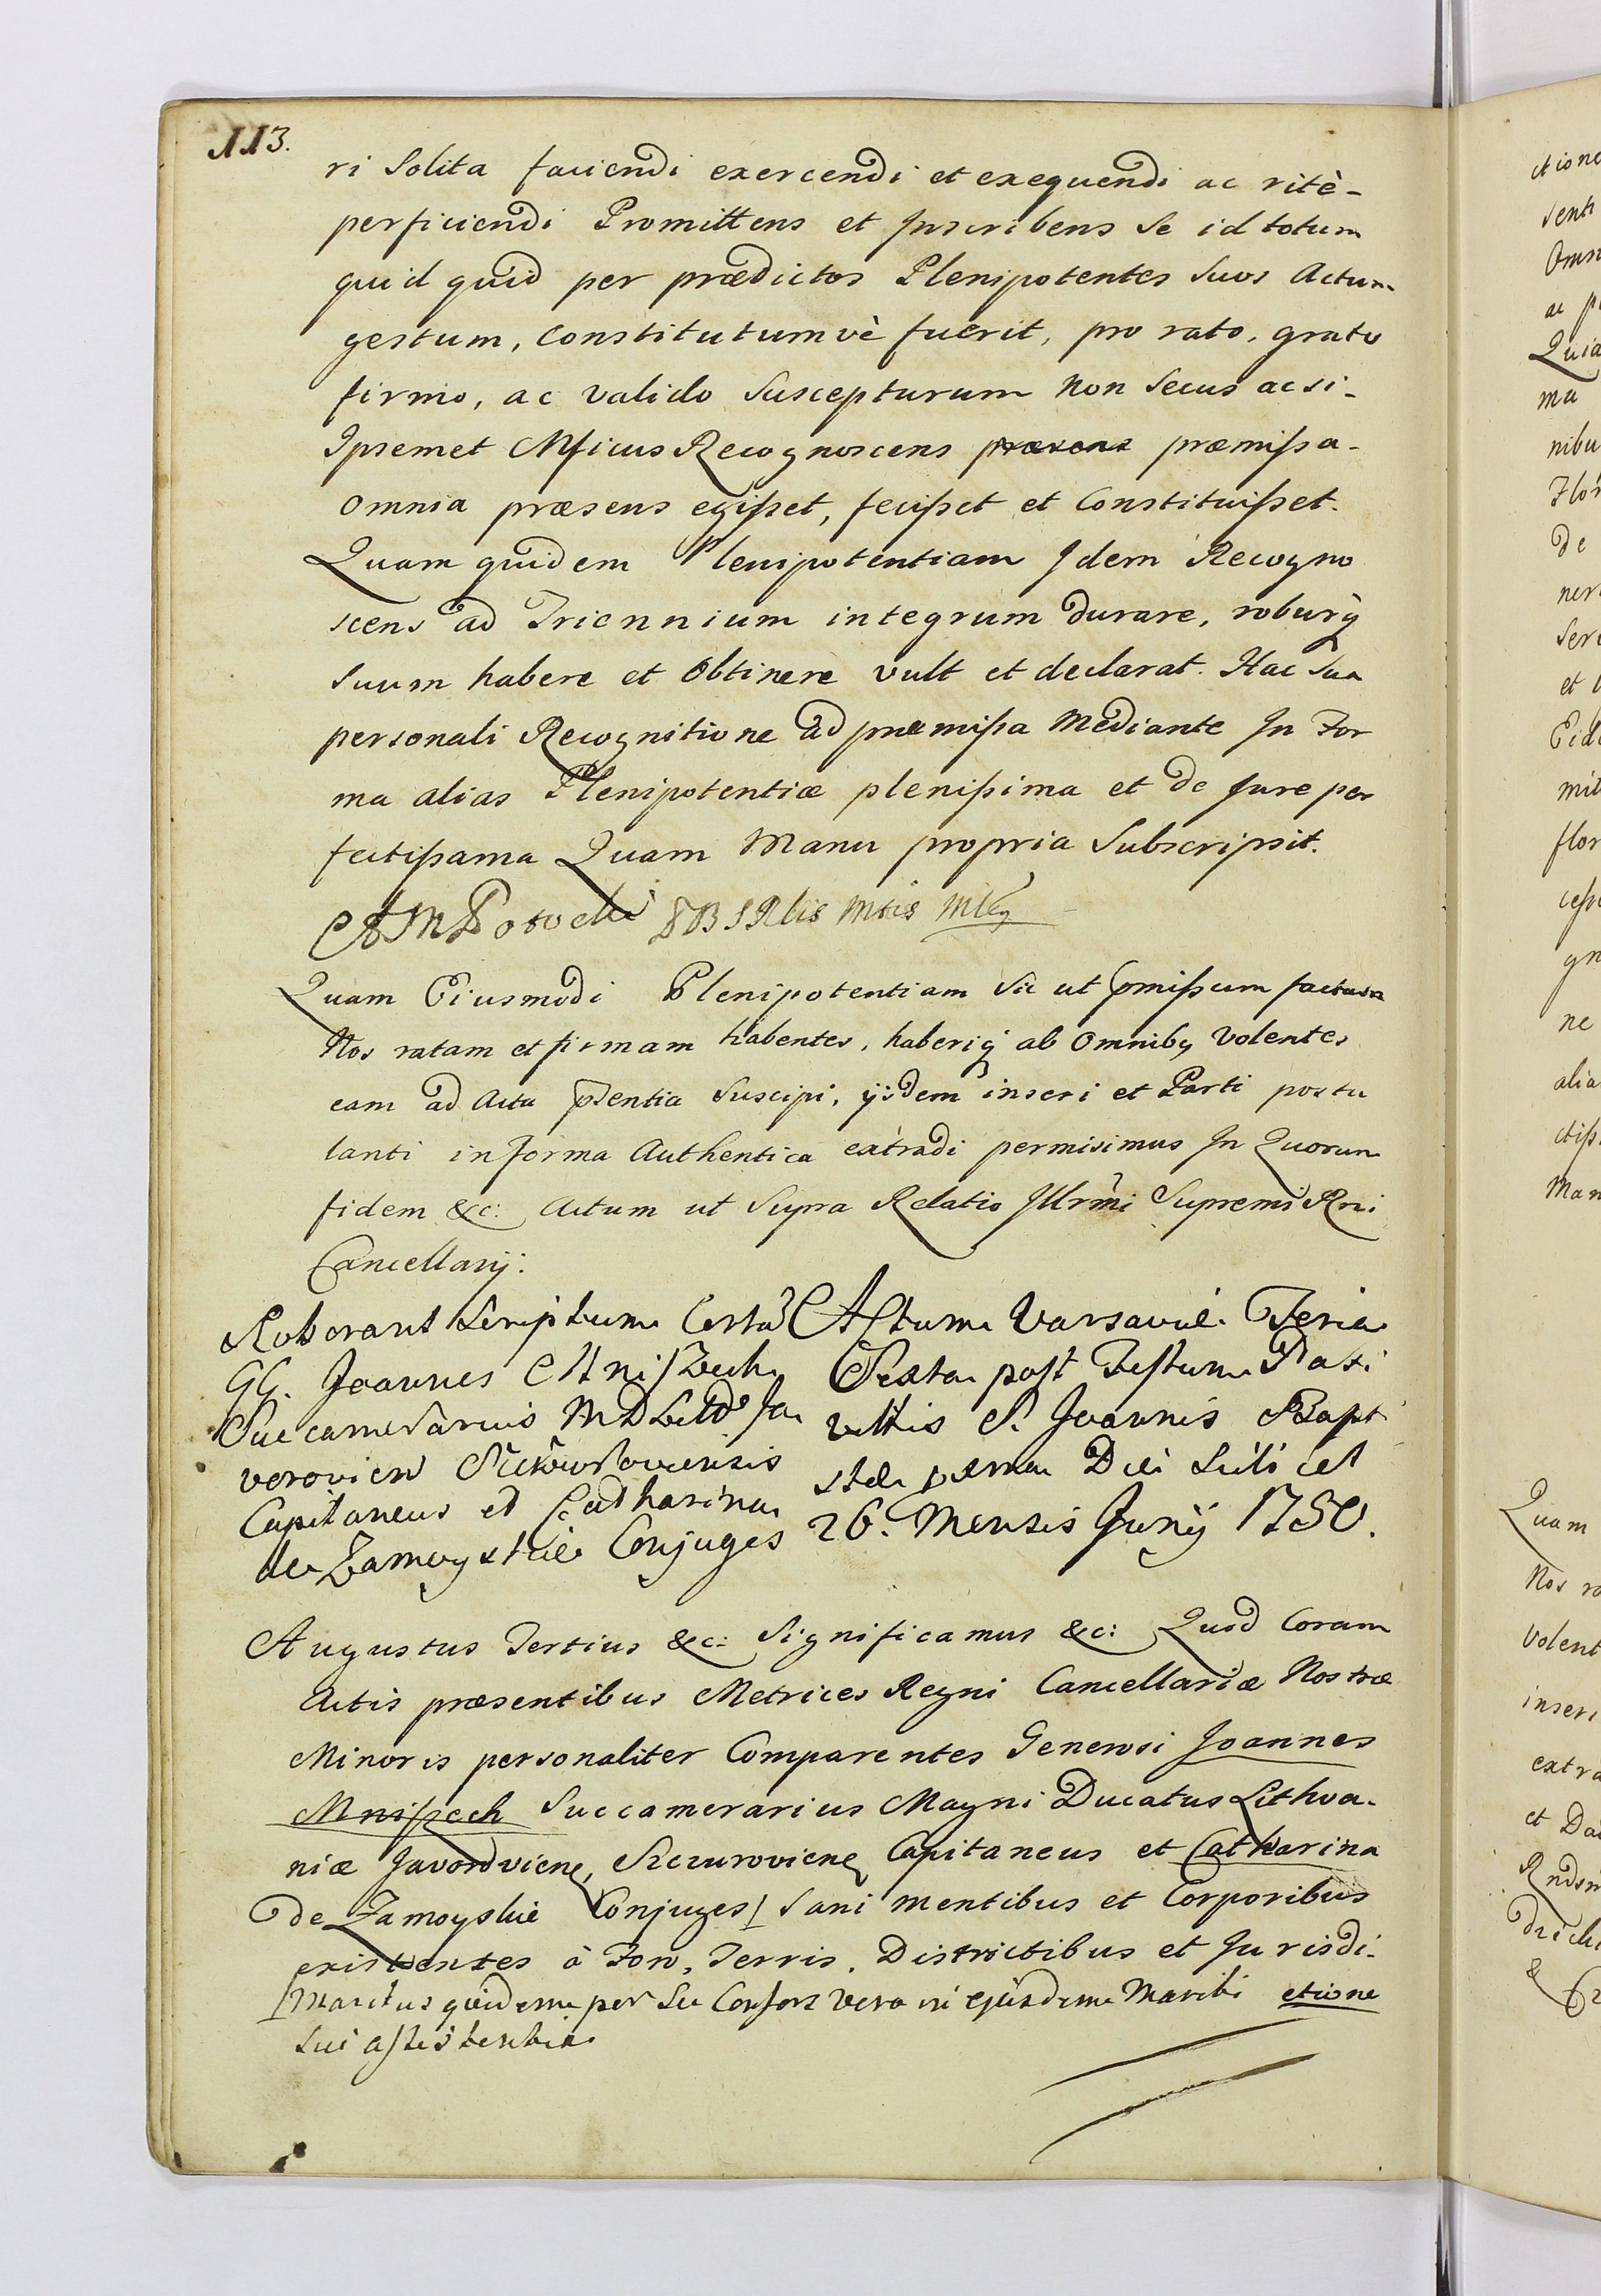 113.
ri Solita faciendi exercendi et exequendi ac ritè-
perficiendi Promittens et Inscribens Se id totum
quid quid per prædictos Plenipotentes Suos Actum
gestum, Constitutumvè fuerit, pro rato, grato
firmo, ac valido Suscepturum Non Secus ac si-
Ipsemet Mficus Recognoscens præsens præmissa-
Omnia præsens egisset, fecisset et Constituisset.
Quam quidem Plenipotentiam Idem Recogno
scens ad Triennium integrum Durare, roburq
Suum habere et Obtinere vult et declarat. Hac Sua
personali Recognitione ad præmissa Mediante In For
ma alias Plenipotentiæ plenissima et de Jure per
fectissama Quam Manu propria Subscripsit.
AM Potocki
Quam Eiusmodi Plenipotentiam Sic ut pmissum factam
Nos ratam et firmam habentes, haberiq ab Omnibq Volentes
eam ad Acta pdentia Suscipi, ijsdem inseri et Parti postu
lanti in forma Authentica extradi permisimus In Quorum
fidem &c: Actum ut Supra Relatio Illrmi Supremi Rni
Cancellarij:
Roborant Scriptum Certũ
GG. Joannes Mniszech
Succamerarius MDLitt Ja
vorovien Szczurovicensis
Capitaneus et Catharina
de Zamoyskie Conjuges
Actum Varsaviæ Feria
Sexta post Festum Nati
vittis S. Joannis Bapt
stæ pxma Die Scilicet
26. Mensis Junij 1750.
Augustus Tertius &c: Significamus &c: Quod Coram
Actis præsentibus Metrices Regni Cancellariæ Nostræ
Minoris personaliter Comparentes Generosi Joannes
Mniszech Succamerarius Magni Ducatus Lithva-
niæ Javoroviene, Szczuroviene Capitaneus et Catharina
de Zamoyskie Conjuges/ Sani mentibus et Corporibus
existentes à Foro, Terris, Districtibus et Jurisdi-
ctione
/Maritus quidem per Se Consors vero in ejusdem Mariti
Sui assistentia